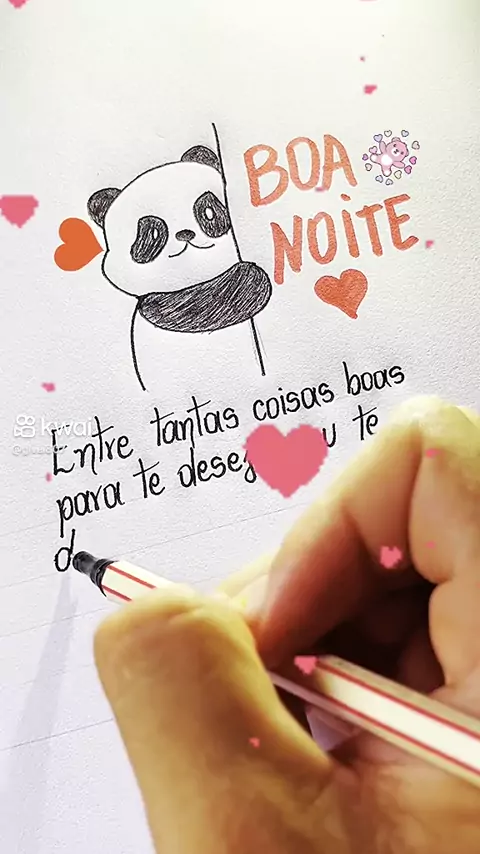 BOA
NOITE
Entre tantas coisas boas
para te dese te
d
kwai